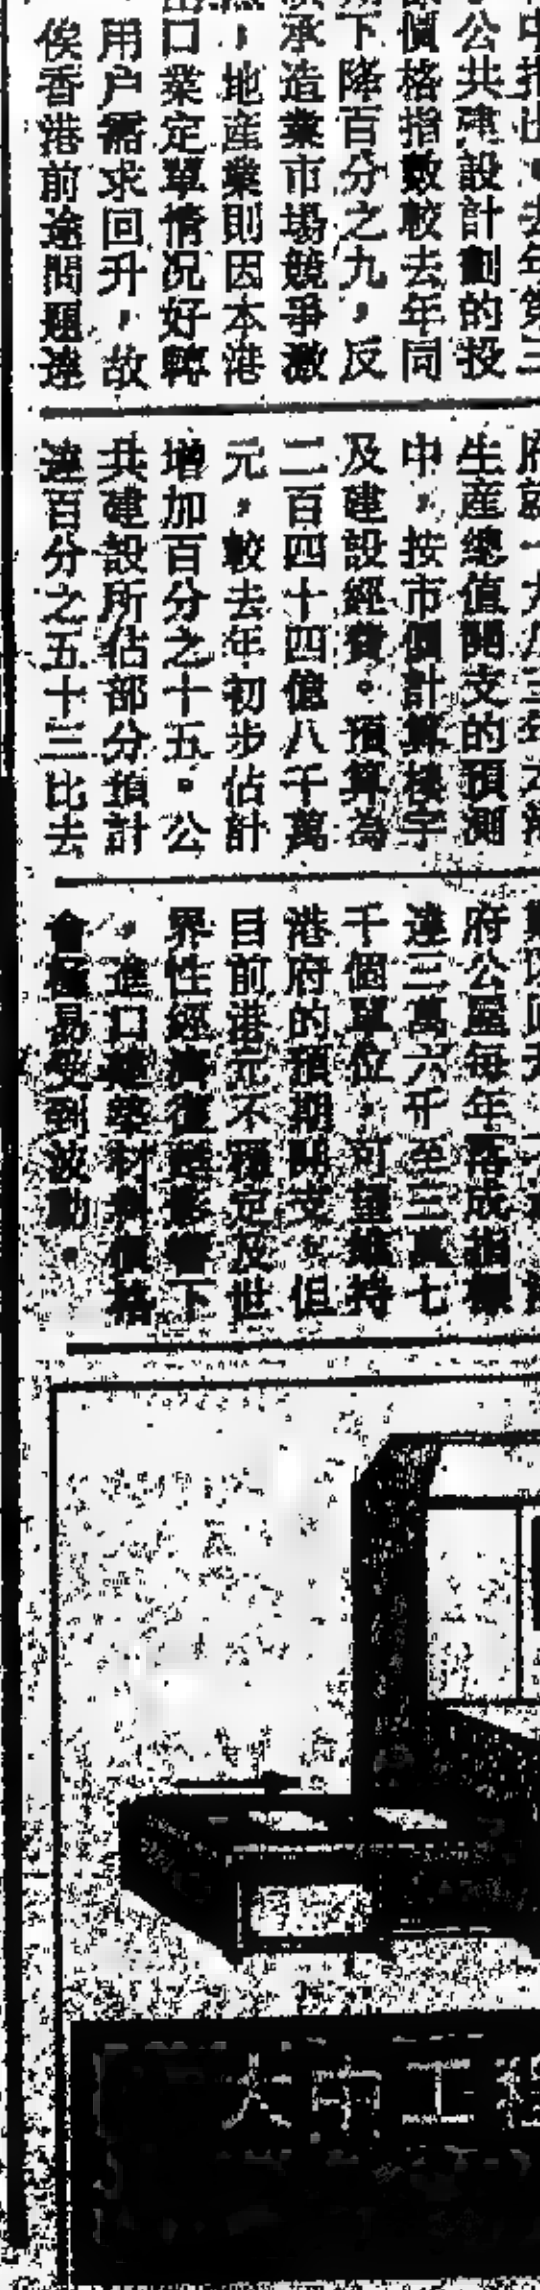 公共建設計劃的投
價格指數較去年同
下降百分之九，反
承造業市場競爭激
，地産業則因本港
口業定單情况好轉
用户需求回升，故
俟香港前途問題達
生産總值開支的預測
中，按市價計算樓宇
及建設經費。預算為
二百四十四億八千萬
元，較去年初步估計
增加百分之十五。公
共建設所佔部分預計
達百分之五十三比去
府公屋每年落成指標
達三萬六千至三萬七
千個單位，可望維持
港府的預期開支，但
目前港元不穩定及世
界性經濟復甦影響下
，進口建築材料價格
會極易受到波動。
大中工